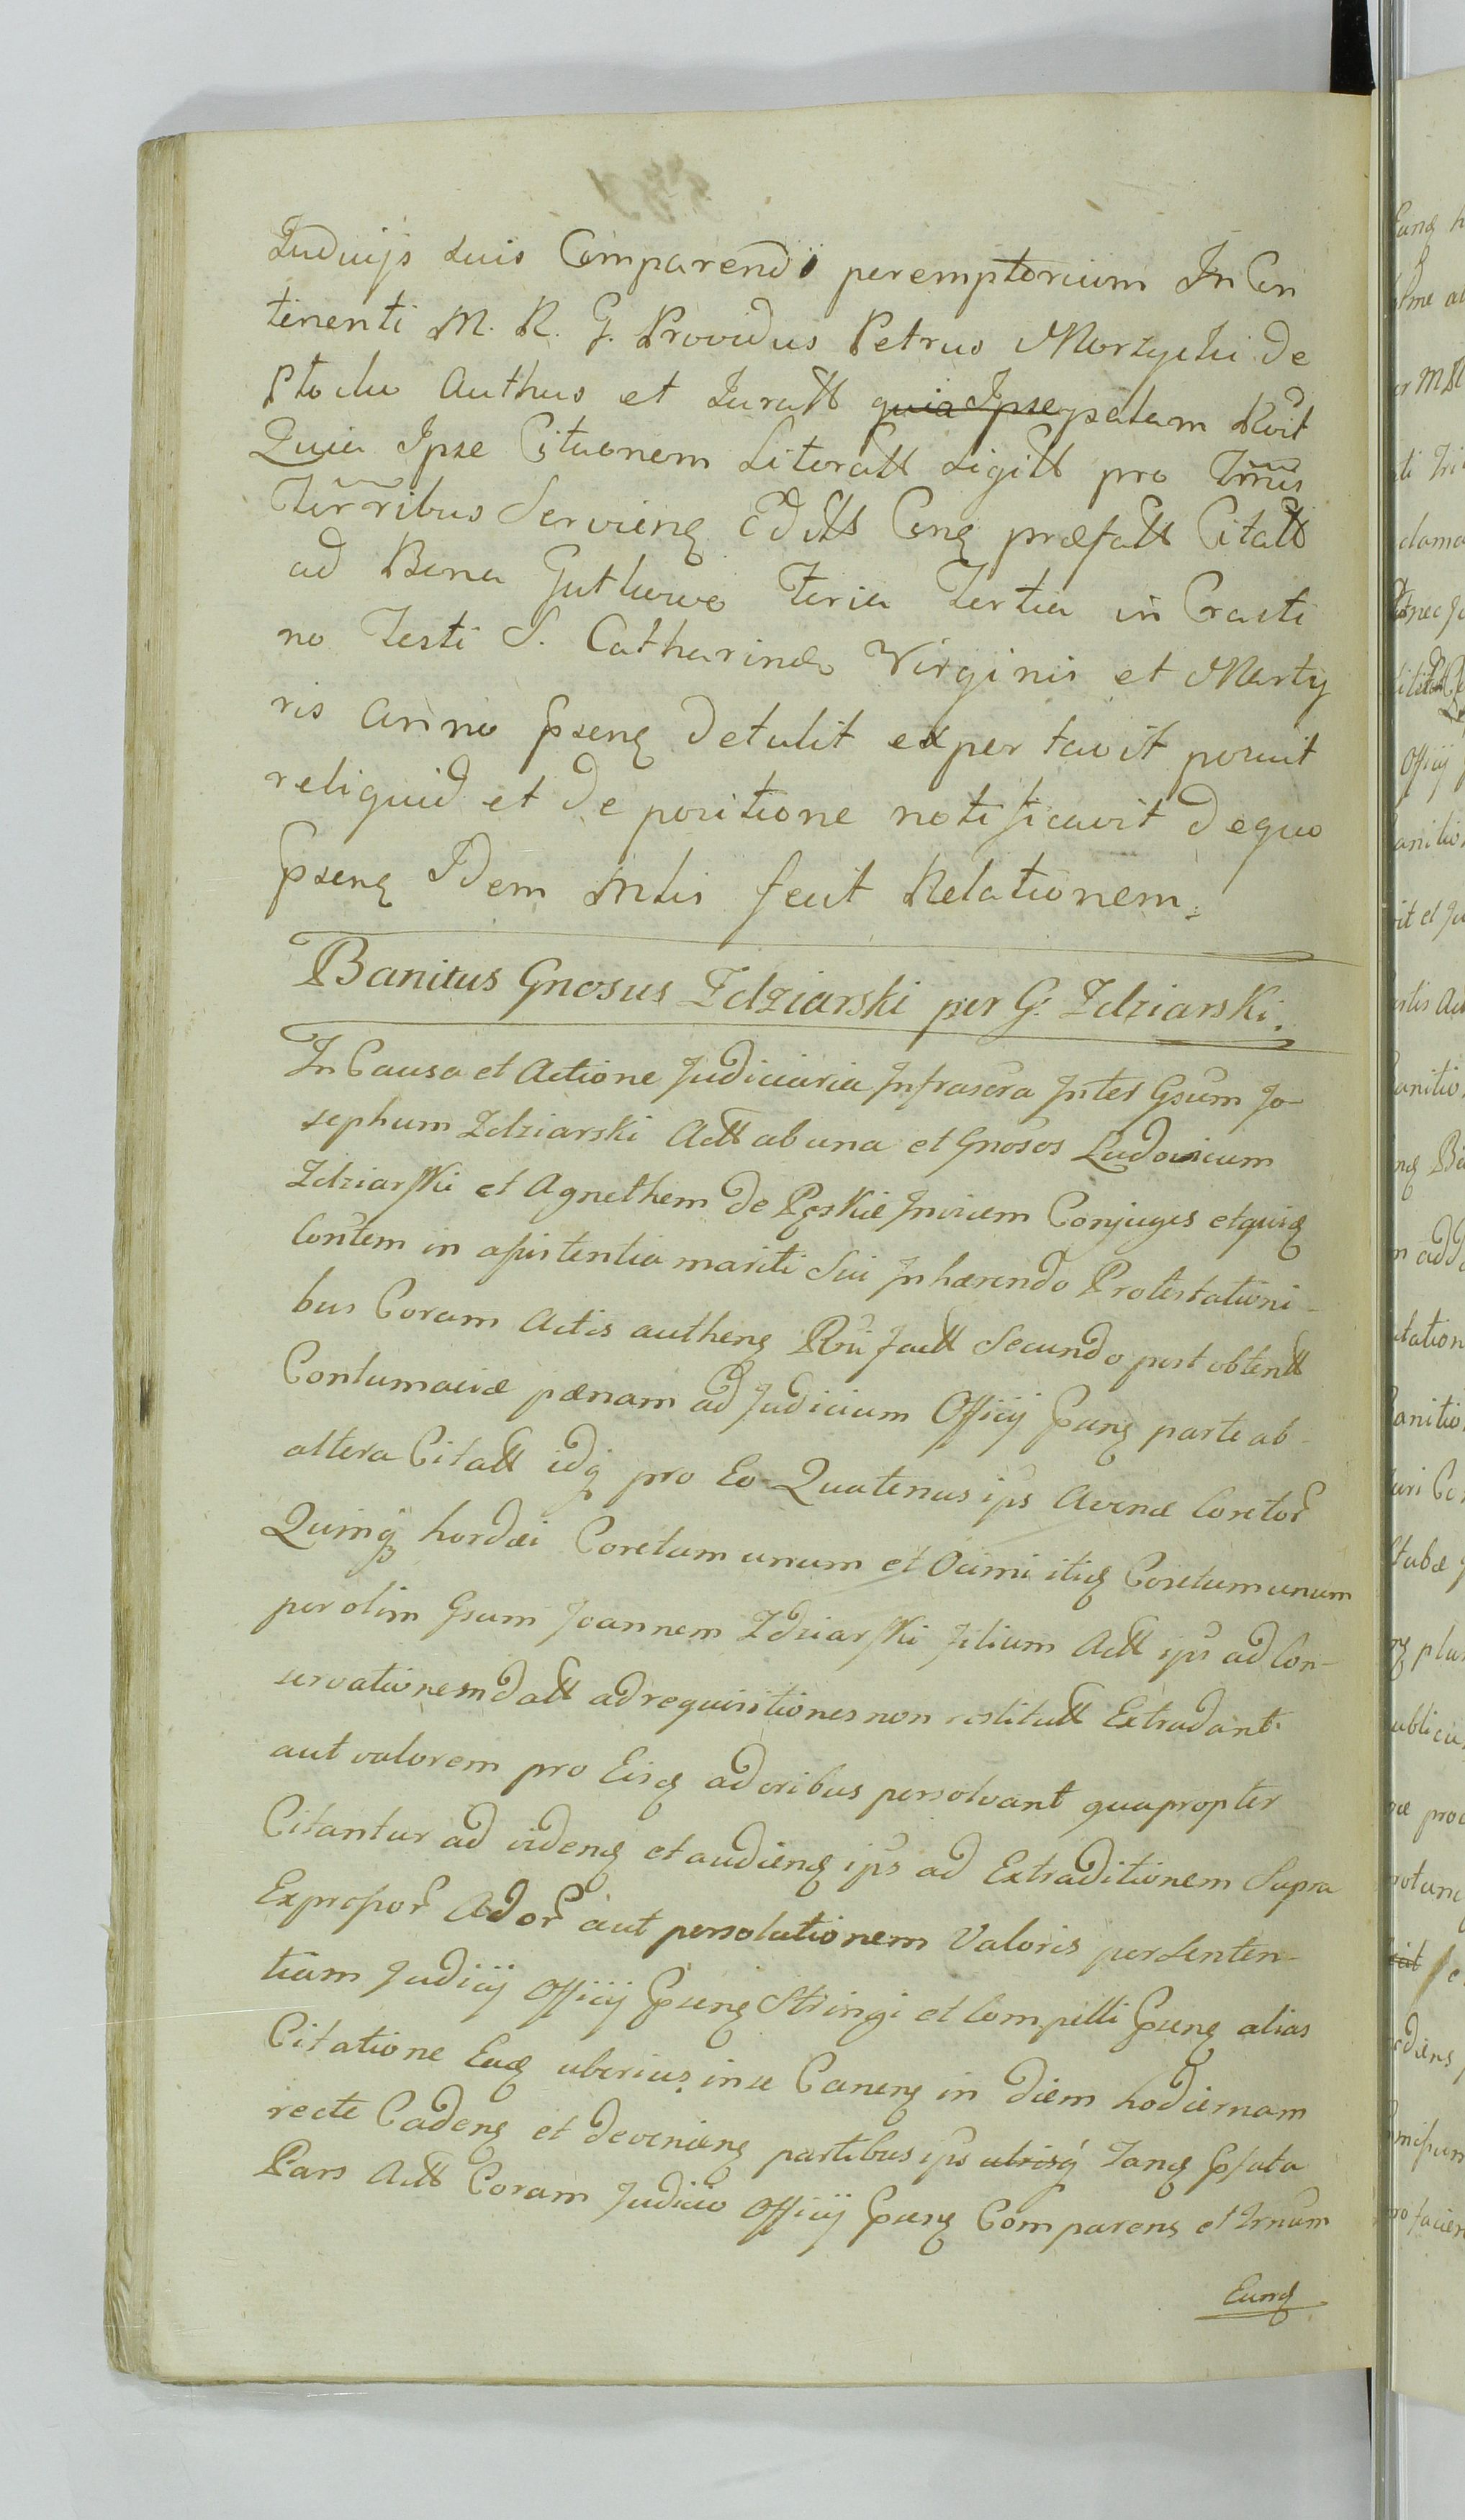 Judicijs suis Comparendi peremptorium In Con
tinenti M. R. G. Providus Petrus Morzycki de
Plocko Authus et Juratt quia Ipse palam Rcit
Quia Ipse Cituonem Literatt Sigitt pro Tmis
Terribus Servieng Editts Cong præfatt Citatt
ad Bona Gutkowo Feria Tertia in Crasti
no Festi S. Catharinæ Virginis et Marty
ris Anno Pseng detulit exportavit posuit
reliquid et de positione notificavit dequo
Pseng Idem Mlis fecit Relationem.
Banitus Gnosus Zdziarski per G. Zdziarski.
In Causa et Actione Judiciaria Infrascra Inter Gsum Jo-
sephum Zdziarski Actt ab una et Gnosos Ludovicum
Zdziarski et Agnethem de Pęskie Invicem Conjuges etquidg
Contem in assistentia mariti Sui Inhærendo Protestationi-
bus Coram Actis autheng Rni factt Secundo post obtentt
Contumaciæ pœnam ad Judicium Officij Pseng parte ab
altera Citatt idq pro Eo Quatenus ips Avenæ Coretor
Quinq hordei Coretum unum et Ocimi itidg Coretum unum
per olim Gsum Joannem Zdziarski filium Actt ips ad Con-
servationem datt ad requisitiones non restitutt Extradant
aut valorem pro Eisdg adoribus persolvant quapropter
Citantur ad videng et audieng ips ad Extraditionem Supra
Exprssor Ador aut persolutionem Valoris per Senten-
tiam Judicij Officij Pseng Stringi et Compelli Pseng alias
Citatione Eadg uberius in se Caneng in diem hodiernam
recte Cadeng et devenieng partibus ips utrisq Tang Pfata
Pars Actt Coram Judicio Officij Pseng Comparens et Trnum
Eung